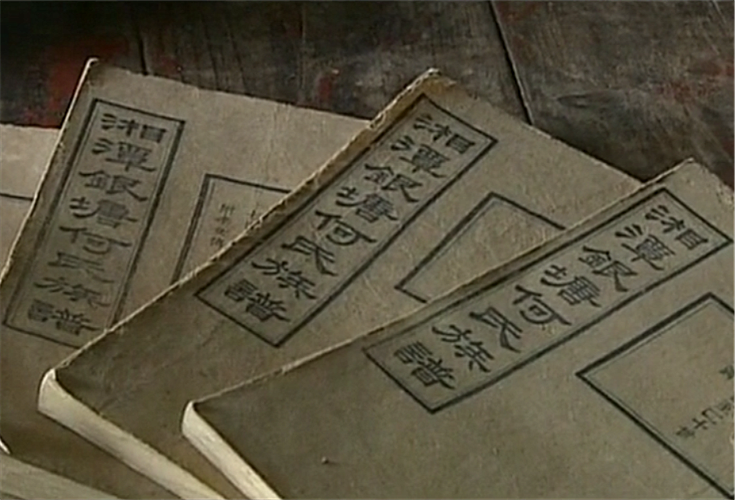 湘潭銀塘何氏族譜
湘潭銀塘何氏族譜
湘潭銀塘何氏族譜